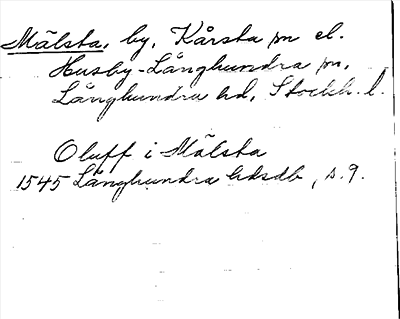 Mälsta, by, Kårsta sn el.
Husby-Långhundra sn,
Långhundra hd, Stockh. l.
Oluff i Mälsta
1545 Långhundra hdsdb, s. 9.